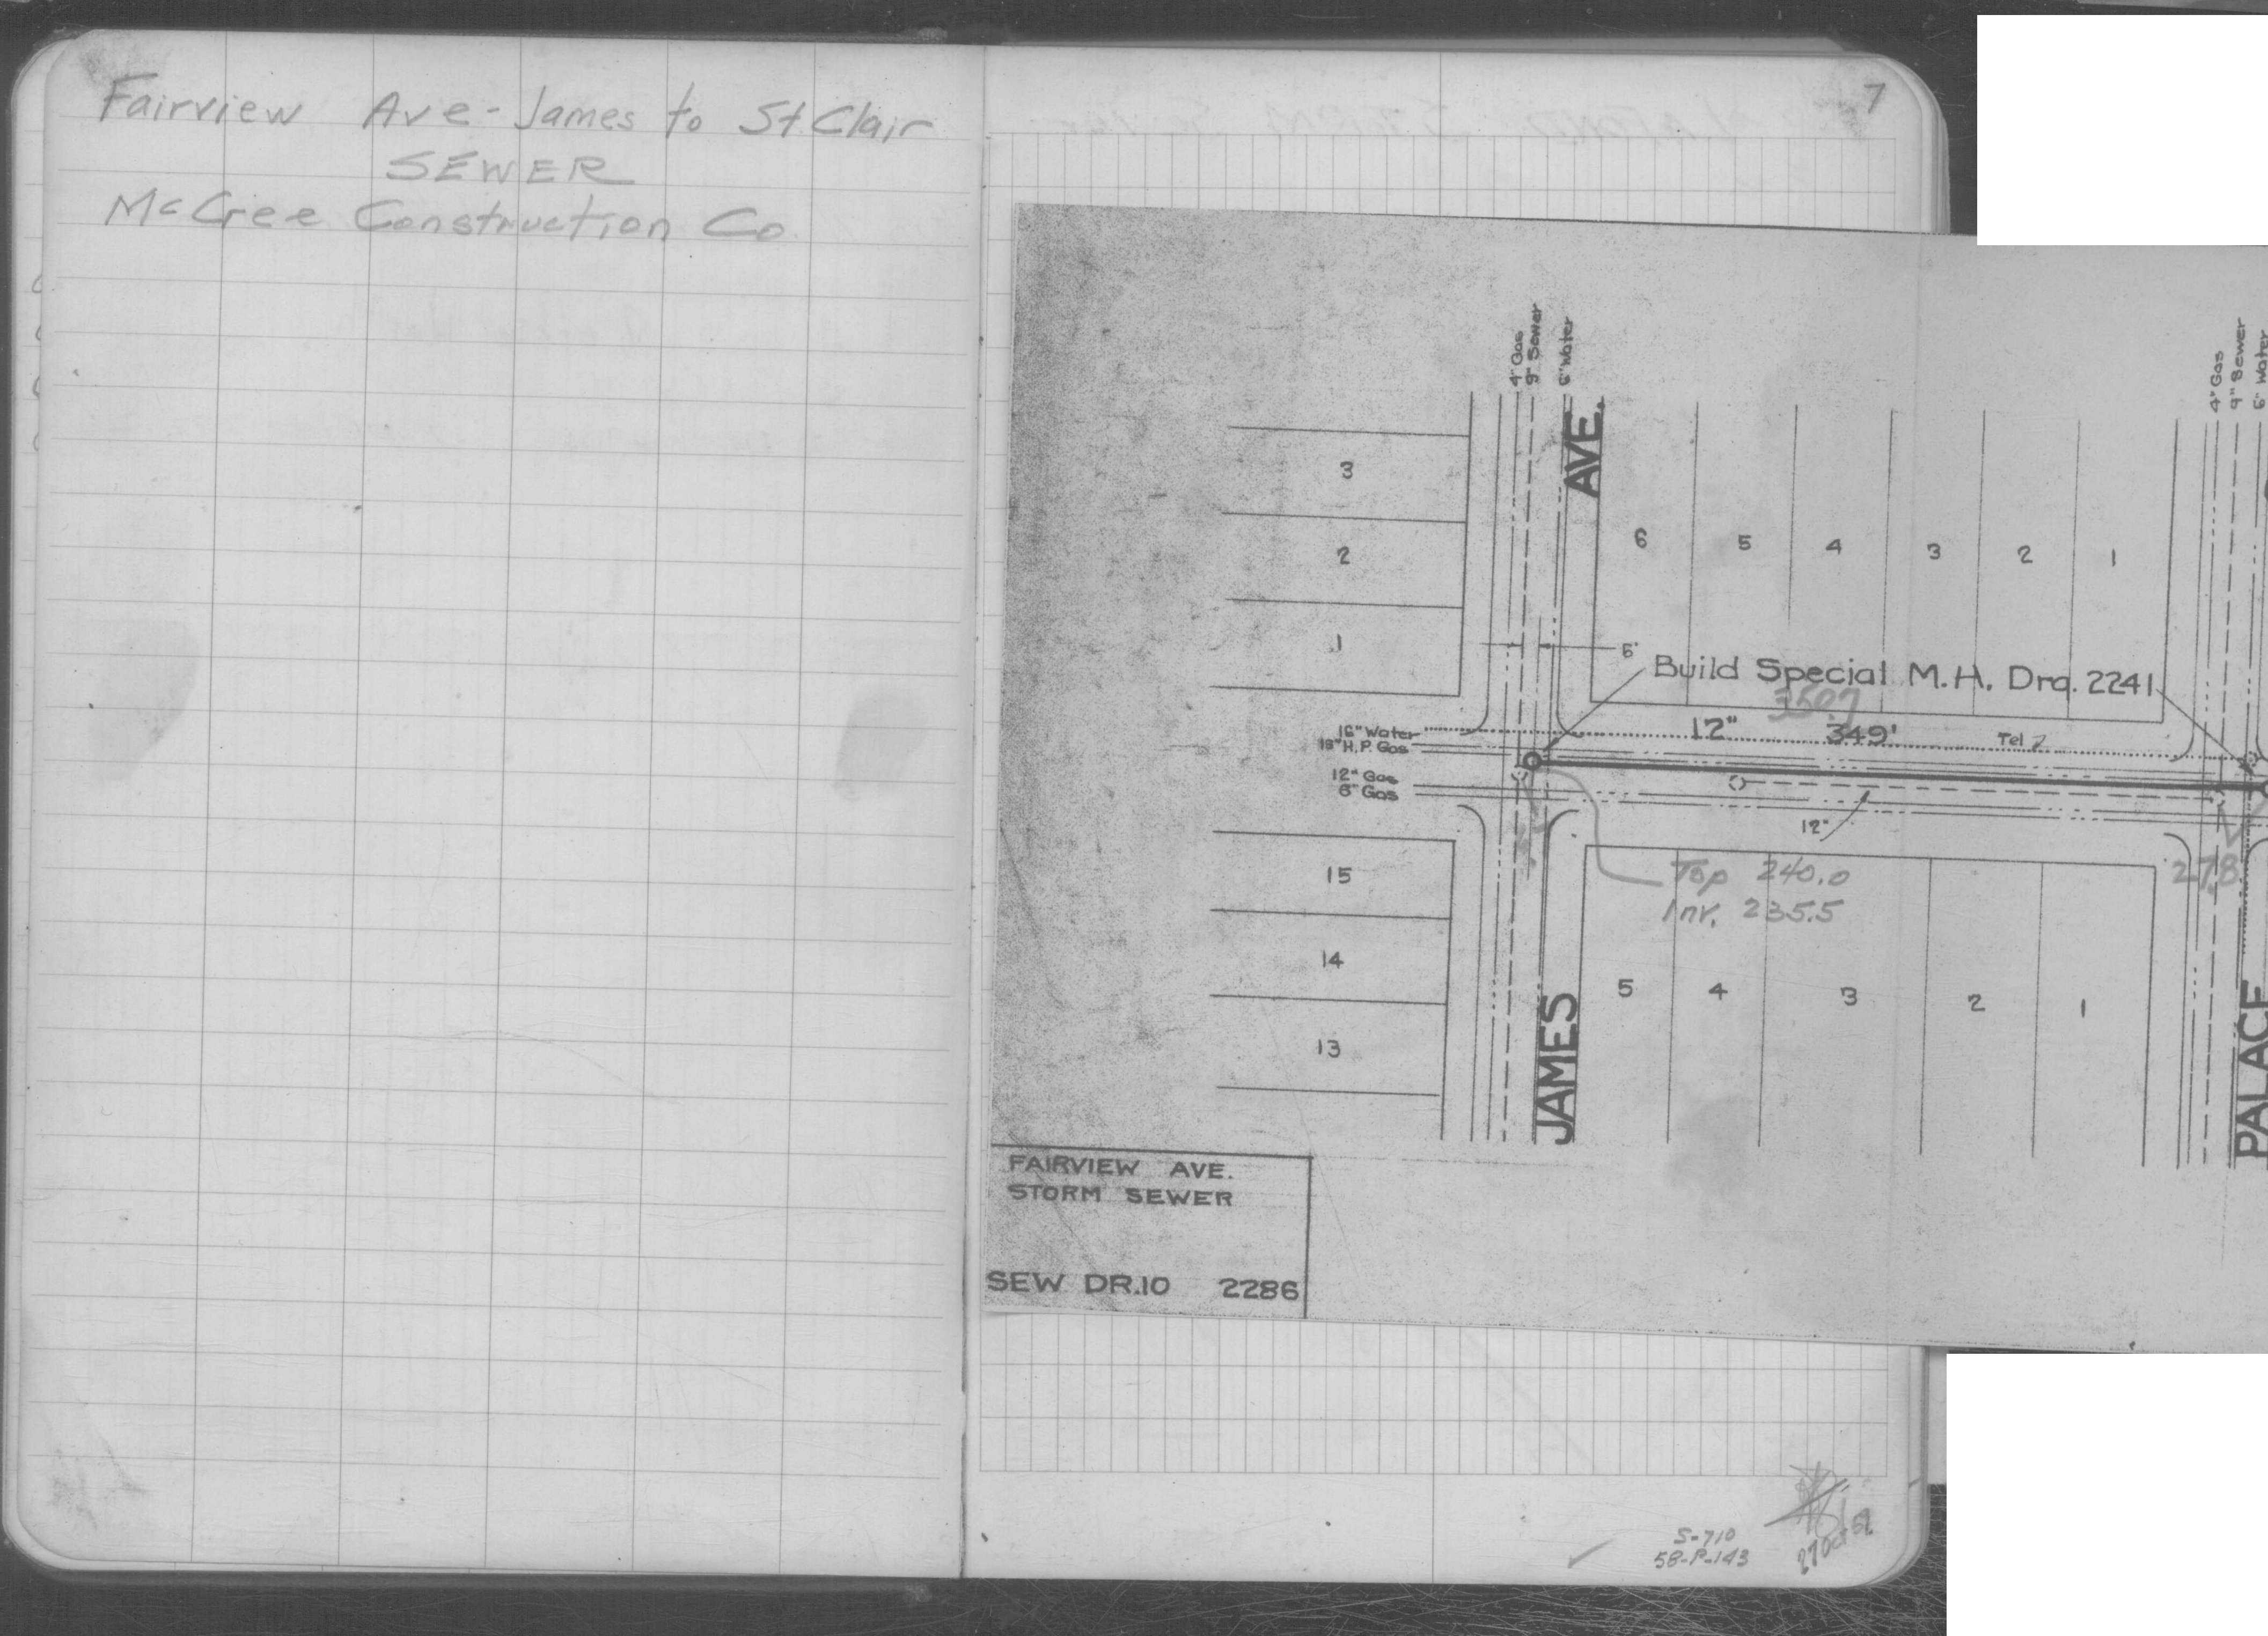 Fairview Ave - James to St Clair
SEWER
McCree Construction Co.
7
4" Gas
9" Sewer
6" Water
AVE.
4" Gas
9" Sewer
6" Water
3
2
1
6 5 4 3 2 1
6'
Build Special M.H. Drg. 2241
3507
12" 349'
Tel
16" Water
18" H.P. Gas
12" Gas
6" Gas
12"
Top 240.0
Inv. 235.5
278
15
14
13
5 4 3 2 1
JAMES
PALACE
FAIRVIEW AVE.
STORM SEWER
SEW DR.10 2286
S-710
58-P-143
27 Oct 58